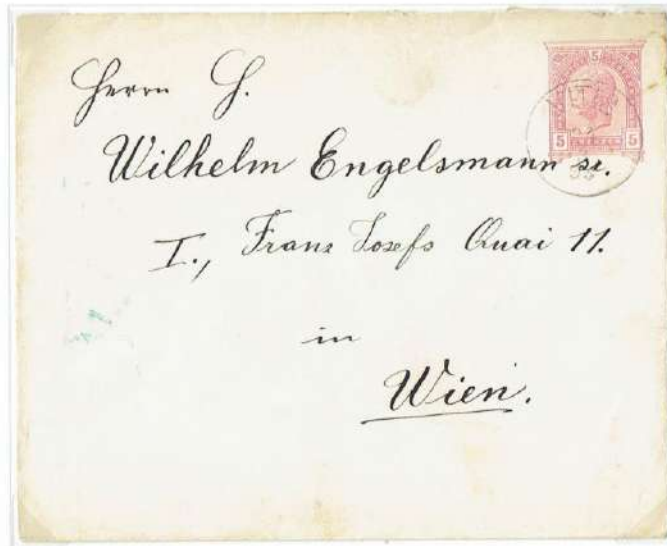 Herrn H.
Wilhelm Engelsmann sr.
I., Franz Josefs Quai 11.
in
Wien.
5
5 5